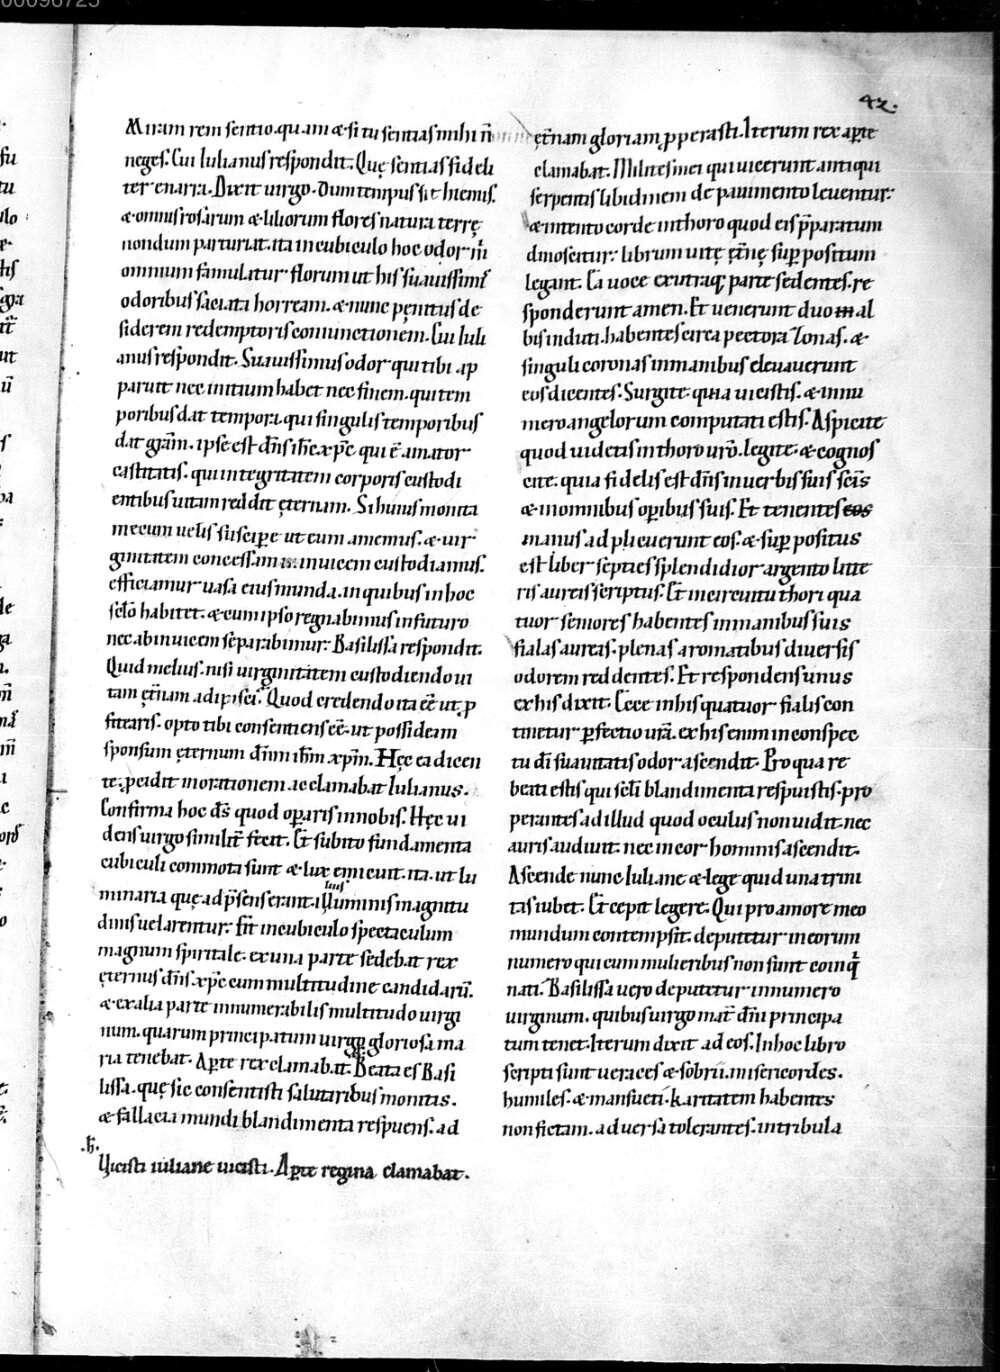 42.
Miram rem sentio. quam & si tu sentias mihi n̄
neges. Cui Iulianus respondit. Quę sentias fideli
ter enarra. Dixit uirgo. Dum tempus sit hiemis.
& omnis rosarum & liliorum flores natura terrę
nondum parturiat. ita in cubiculo hoc odor m̄
omnium famulatur florum ut his suauissimis
odoribus saciata horream. & nunc penitus de
siderem redemptoris coniunctionem. Cui Iuli
anus respondit. Suauissimus odor qui tibi ap
paruit nec initium habet nec finem. qui tem
poribus dat tempora. qui singulis temporibus
dat gr̄am. ipse est dn̄s ih̄c xp̄c. qui ē amator
castitatis. qui integritatem corporis custodi
entibus uitam reddit ęternam. Si huius monita
mecum uelis suscipere ut eum amemus. & uir
ginitatem concessam inuicem custodiamus.
efficiamur uasa eius munda. in quibus in hoc
sc̄lo habitet. & cum ipso regnabimus in futuro
nec ab inuicem separabimur. Basilissa respondit.
Quid melius. nisi uirginitatem custodiendo ui
tam ęt̄nam adipisci. Quod credendo ita eē ut p̱
fitearis. opto tibi consentiens eē. ut possideam
sponsum ęternum dn̄m ih̄m xp̄m. Hęc ea dicen
te. p̱cidit in orationem ac clamabat Iulianus.
Confirma hoc d̄s quod op̱aris in nobis. Hęc ui
dens uirgo simili͞t fecit. Et subito fundamenta
cubiculi commota sunt & lux emicuit. ita. ut lu
minaria quę adp̄sens erant. illius luminis magnitu
dinis uelarentur. Fit in cubiculo spectaculum
magnum spiritale. ex una parte sedebat rex
ęternus dn̄s xp̄c cum multitudine candidarū.
& ex alia parte innumerabilis multitudo uirgi
num. quarum principatum uirgo gloriosa ma
ria tenebat. A p̱te rex clamabat. Beata es Basi
lissa. quę sic consentisti salutaribus monitis.
& fallacia mundi blandimenta respuens. ad
.h̄.
Uicisti iuliane uicisti. A p̱te regina clamabat.
ęt̄nam gloriam p̱perasti. Iterum rex a p̱te
clamabat. Milites mei qui uicerunt antiqui
serpentis libidinem de pauimento leuentur.
& intento corde in thoro quod eis p̄paratum
dinoscitur. librum uitę ęt̄nę sup̱ positum
legant. Ea uoce ex utraq; parte sedentes. re
sponderunt amen. Et uenerunt duo in al
bis induti. habentes circa pectora zonas. &
singuli coronas in manibus eleuauerunt
eos dicentes. Surgite. quia uicistis. & in nu
mero angelorum computati estis. Aspicite
quod uidetis in thoro ur̄o. legite. & cognos
cite. quia fidelis est dn̄s in uerbis suis sc̄is
& in omnibus op̱ibus suis. Et tenentes eos
manus adplicuerunt eos. & sup̱ positus
est liber septies splendidior argento litte
ris aureis scriptus. Et in circuitu thori qua
tuor seniores habentes in manibus suis
fialas aureas. plenas aromatibus diuersis
odorem reddentes. Et respondens unus
ex his dixit. Ecce in his quatuor fialis con
tinetur p̱fectio ur̄a. ex his enim in conspec
tu dī suauitatis odor ascendit. Pro qua re
beati estis qui sc̄li blandimenta respuistis. pro
perantes ad illud quod oculus non uidit. nec
auris audiuit. nec in cor hominis ascendit.
Ascende nunc Iuliane & lege quid una trini
tas iubet. Et cepit legere. Qui pro amore meo
mundum contempsit. deputetur in eorum
numero qui cum mulieribus non sunt coinq̄
nati. Basilissa uero deputetur in numero
uirginum. quibus uirgo mat̄ dn̄i principa
tum tenet. Iterum dixit ad eos. In hoc libro
scripti sunt ueraces & sobrii. misericordes.
humiles. & mansueti. karitatem habentes
non fictam. aduersa tolerantes. in tribula